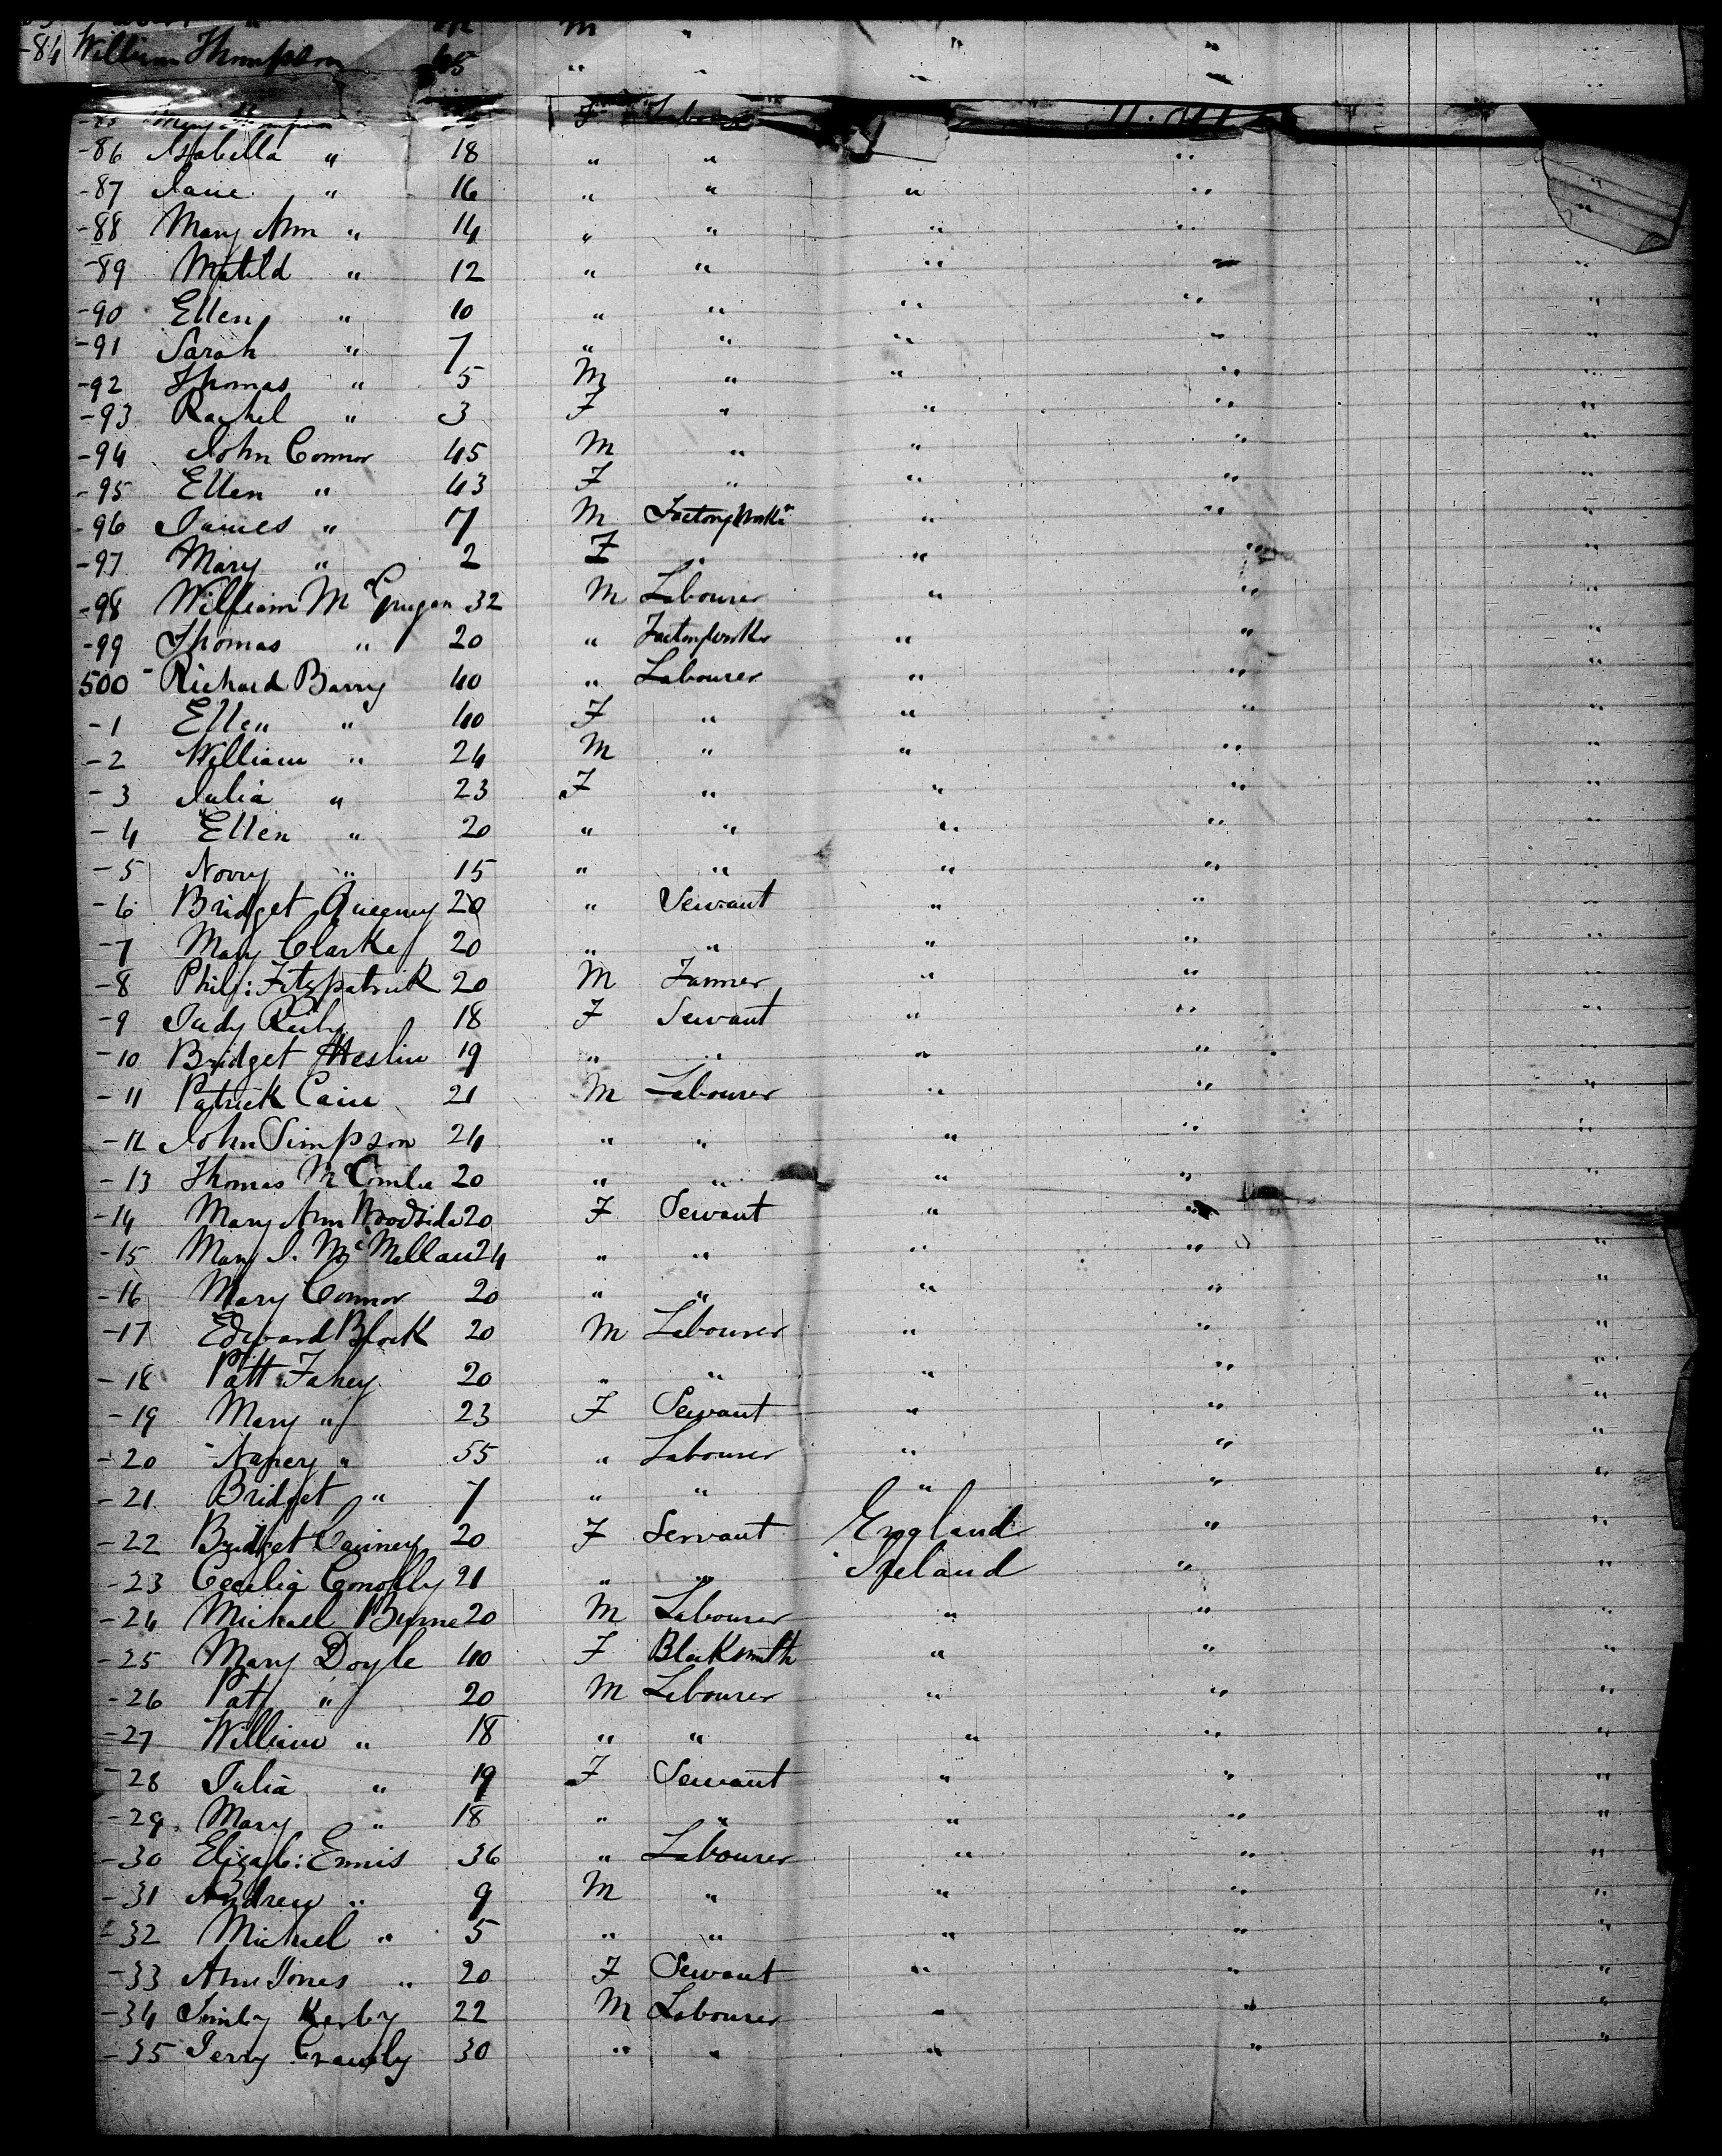 -84 William Thompson 45 " " " "
-85 Mary Thompson F Labourer
-86 Isabella " 18 " " "
-87 Jane " 16 " " " " "
-88 Mary Ann " 14 " " " " "
-89 Matild " 12 " " " " "
-90 Ellen " 10 " " " " "
-91 Sarah " 7 " " " " "
-92 Thomas " 5 M " " " "
-93 Rachel " 3 F " " " "
-94 John Connor 45 M " " " "
-95 Ellen " 43 F " " " "
-96 James " 7 M Factory Worker " " "
-97 Mary " 2 F " " " "
-98 William McGuigan 32 M Labourer " " "
-99 Thomas " 20 " Factoryworker " " "
500 - Richard Barry 40 " Labourer " " "
-1 Ellen " 40 F " " " "
-2 William " 24 M " " " "
-3 Julia " 23 F " " " "
-4 Ellen " 20 " " " " "
-5 Norry " 15 " " " " "
-6 Bridget Queeney 20 " Servant " " "
-7 Mary Clarke 20 " " " " "
-8 Phily: Fitzpatrick 20 M Farmer " " "
-9 Judy Reily 18 F Servant " " "
-10 Bridget Heslin 19 " " " " "
-11 Patrick Cain 21 M Labourer " " "
-12 John Simpson 24 " " " " "
-13 Thomas McCombe 20 " " " " "
-14 Mary Ann Woodside 20 F Servant " " "
-15 Mary J. McMellan 24 " " " " "
-16 Mary Connor 20 " " " " "
-17 Edward Block 20 M Labourer " " "
-18 Patt Fahey 20 " " " " "
-19 Mary " 23 F Servant " " "
-20 Nancy " 55 " Labourer " " "
-21 Bridget " 7 " " " " "
-22 Bridget Cainney 20 F Servant England " "
-23 Cecelia Conolly 21 " " Ireland " "
-24 Michael Byrne 20 M Labourer " " "
-25 Mary Doyle 40 F Blacksmith " " "
-26 Pat " 20 M Labourer " " "
-27 William " 18 " " " " "
-28 Julia " 19 F Servant " " "
-29 Mary " 18 " " " " "
-30 Elizab: Ennis 36 " Labourer " " "
-31 Andrew " 9 M " " " "
-32 Michael " 5 " " " " "
-33 Ann Jones " 20 F Servant " " "
-34 Kerby 22 M Labourer " " "
-35 Terry 30 " " " " "